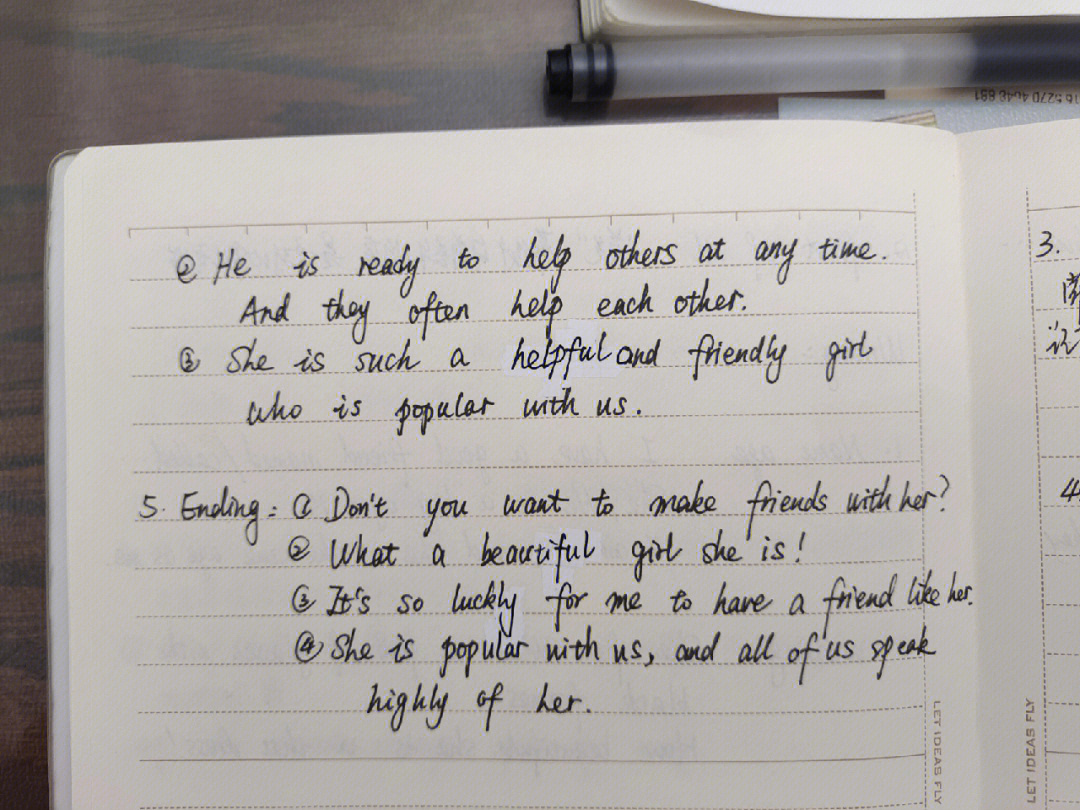 ② He is ready to help others at any time.
And they often help each other.
③ She is such a helpful and friendly girl
who is popular with us.
5. Ending: ① Don't you want to make friends with her?
② What a beautiful girl she is!
③ It's so luckly for me to have a friend like her.
④ She is popular with us, and all of us speak
highly of her.
LET IDEAS FLY
3.
4
LET IDEAS FLY